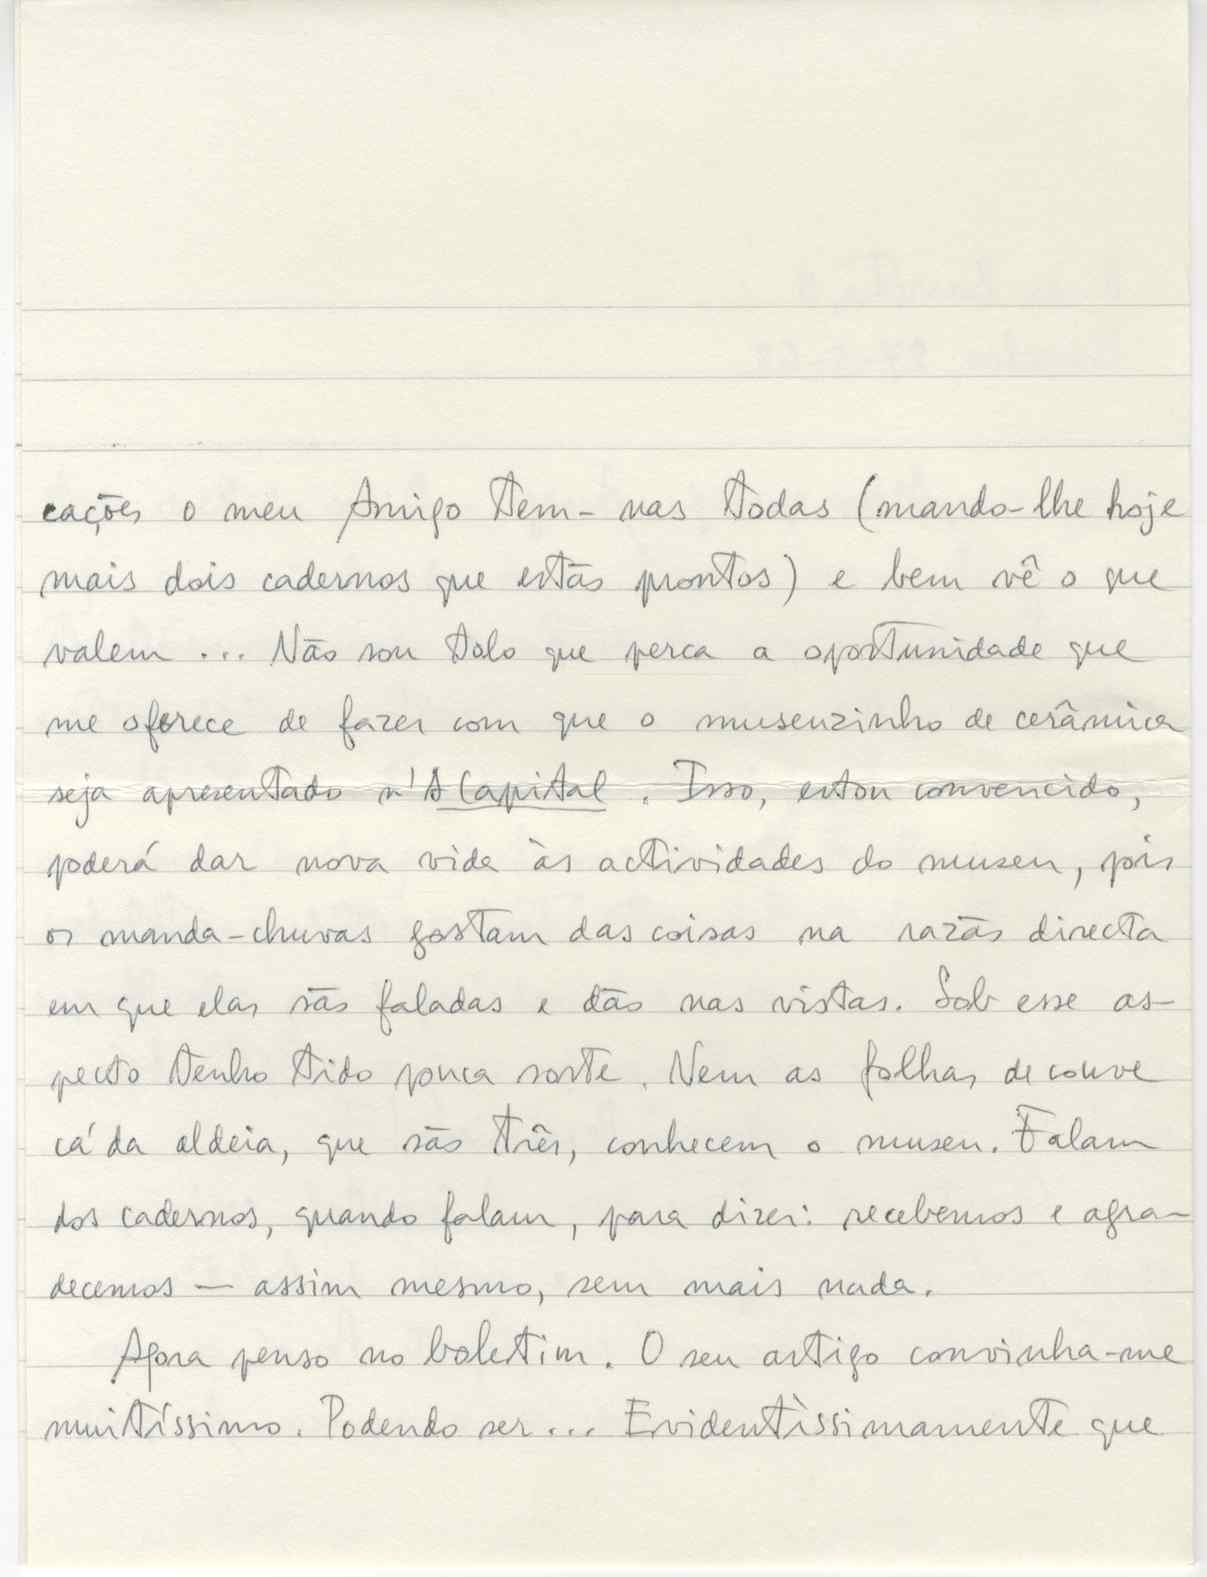 cações o meu Amigo tem-nas todas (mando-lhe hoje
mais dois cadernos que estão prontos) e bem vê o que
valem ... Não sou tolo que perca a oportunidade que
me oferece de fazer com que o museuzinho de cerâmica
seja apresentado n'A Capital. Isso, estou convencido,
poderá dar nova vida às actividades do museu, pois
os manda-chuvas gostam das coisas na razão directa
em que elas são faladas e dão nas vistas. Sob esse as-
pecto tenho tido pouca sorte. Nem as folhas de couve
cá da aldeia, que são três, conhecem o museu. Falam
dos cadernos, quando falam, para dizer: recebemos e agra-
decemos — assim mesmo, sem mais nada.
Agora penso no boletim. O seu artigo convinha-me
muitíssimo. Podendo ser ... Evidentìssimamente que